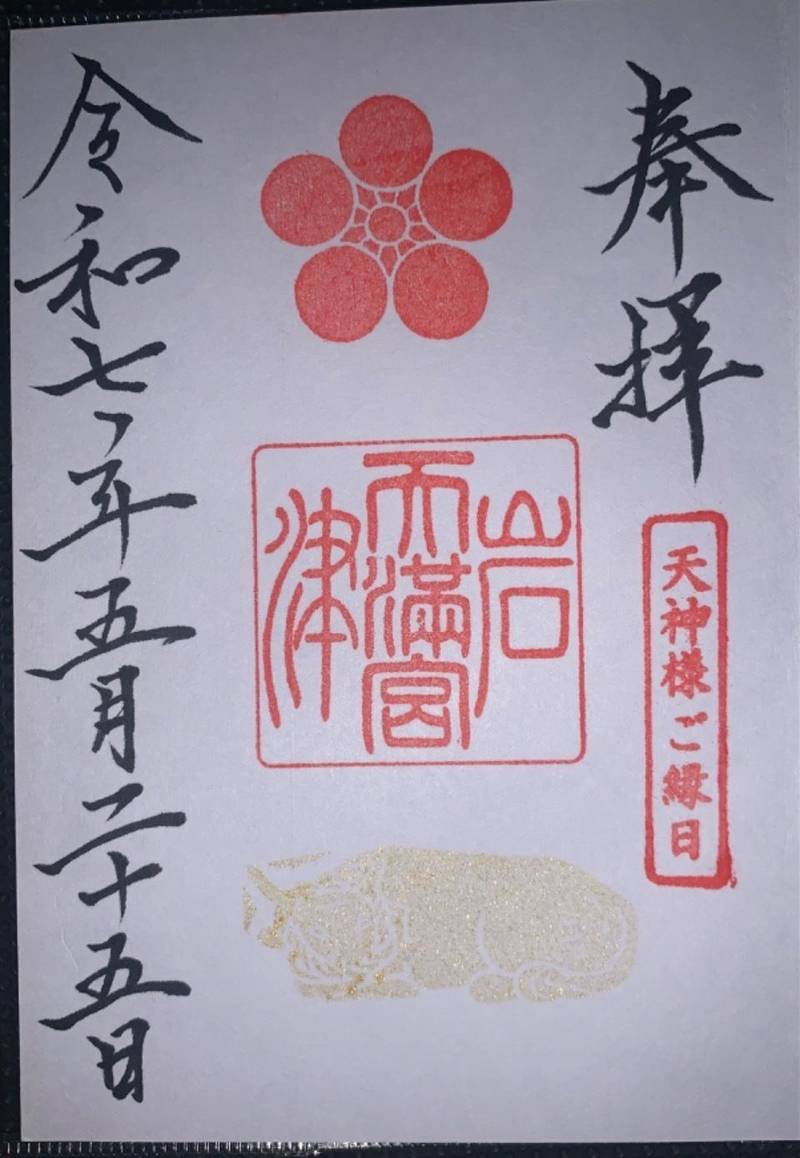 奉拝
天神様ご縁日
岩
天満宮
津
令和七年五月二十五日